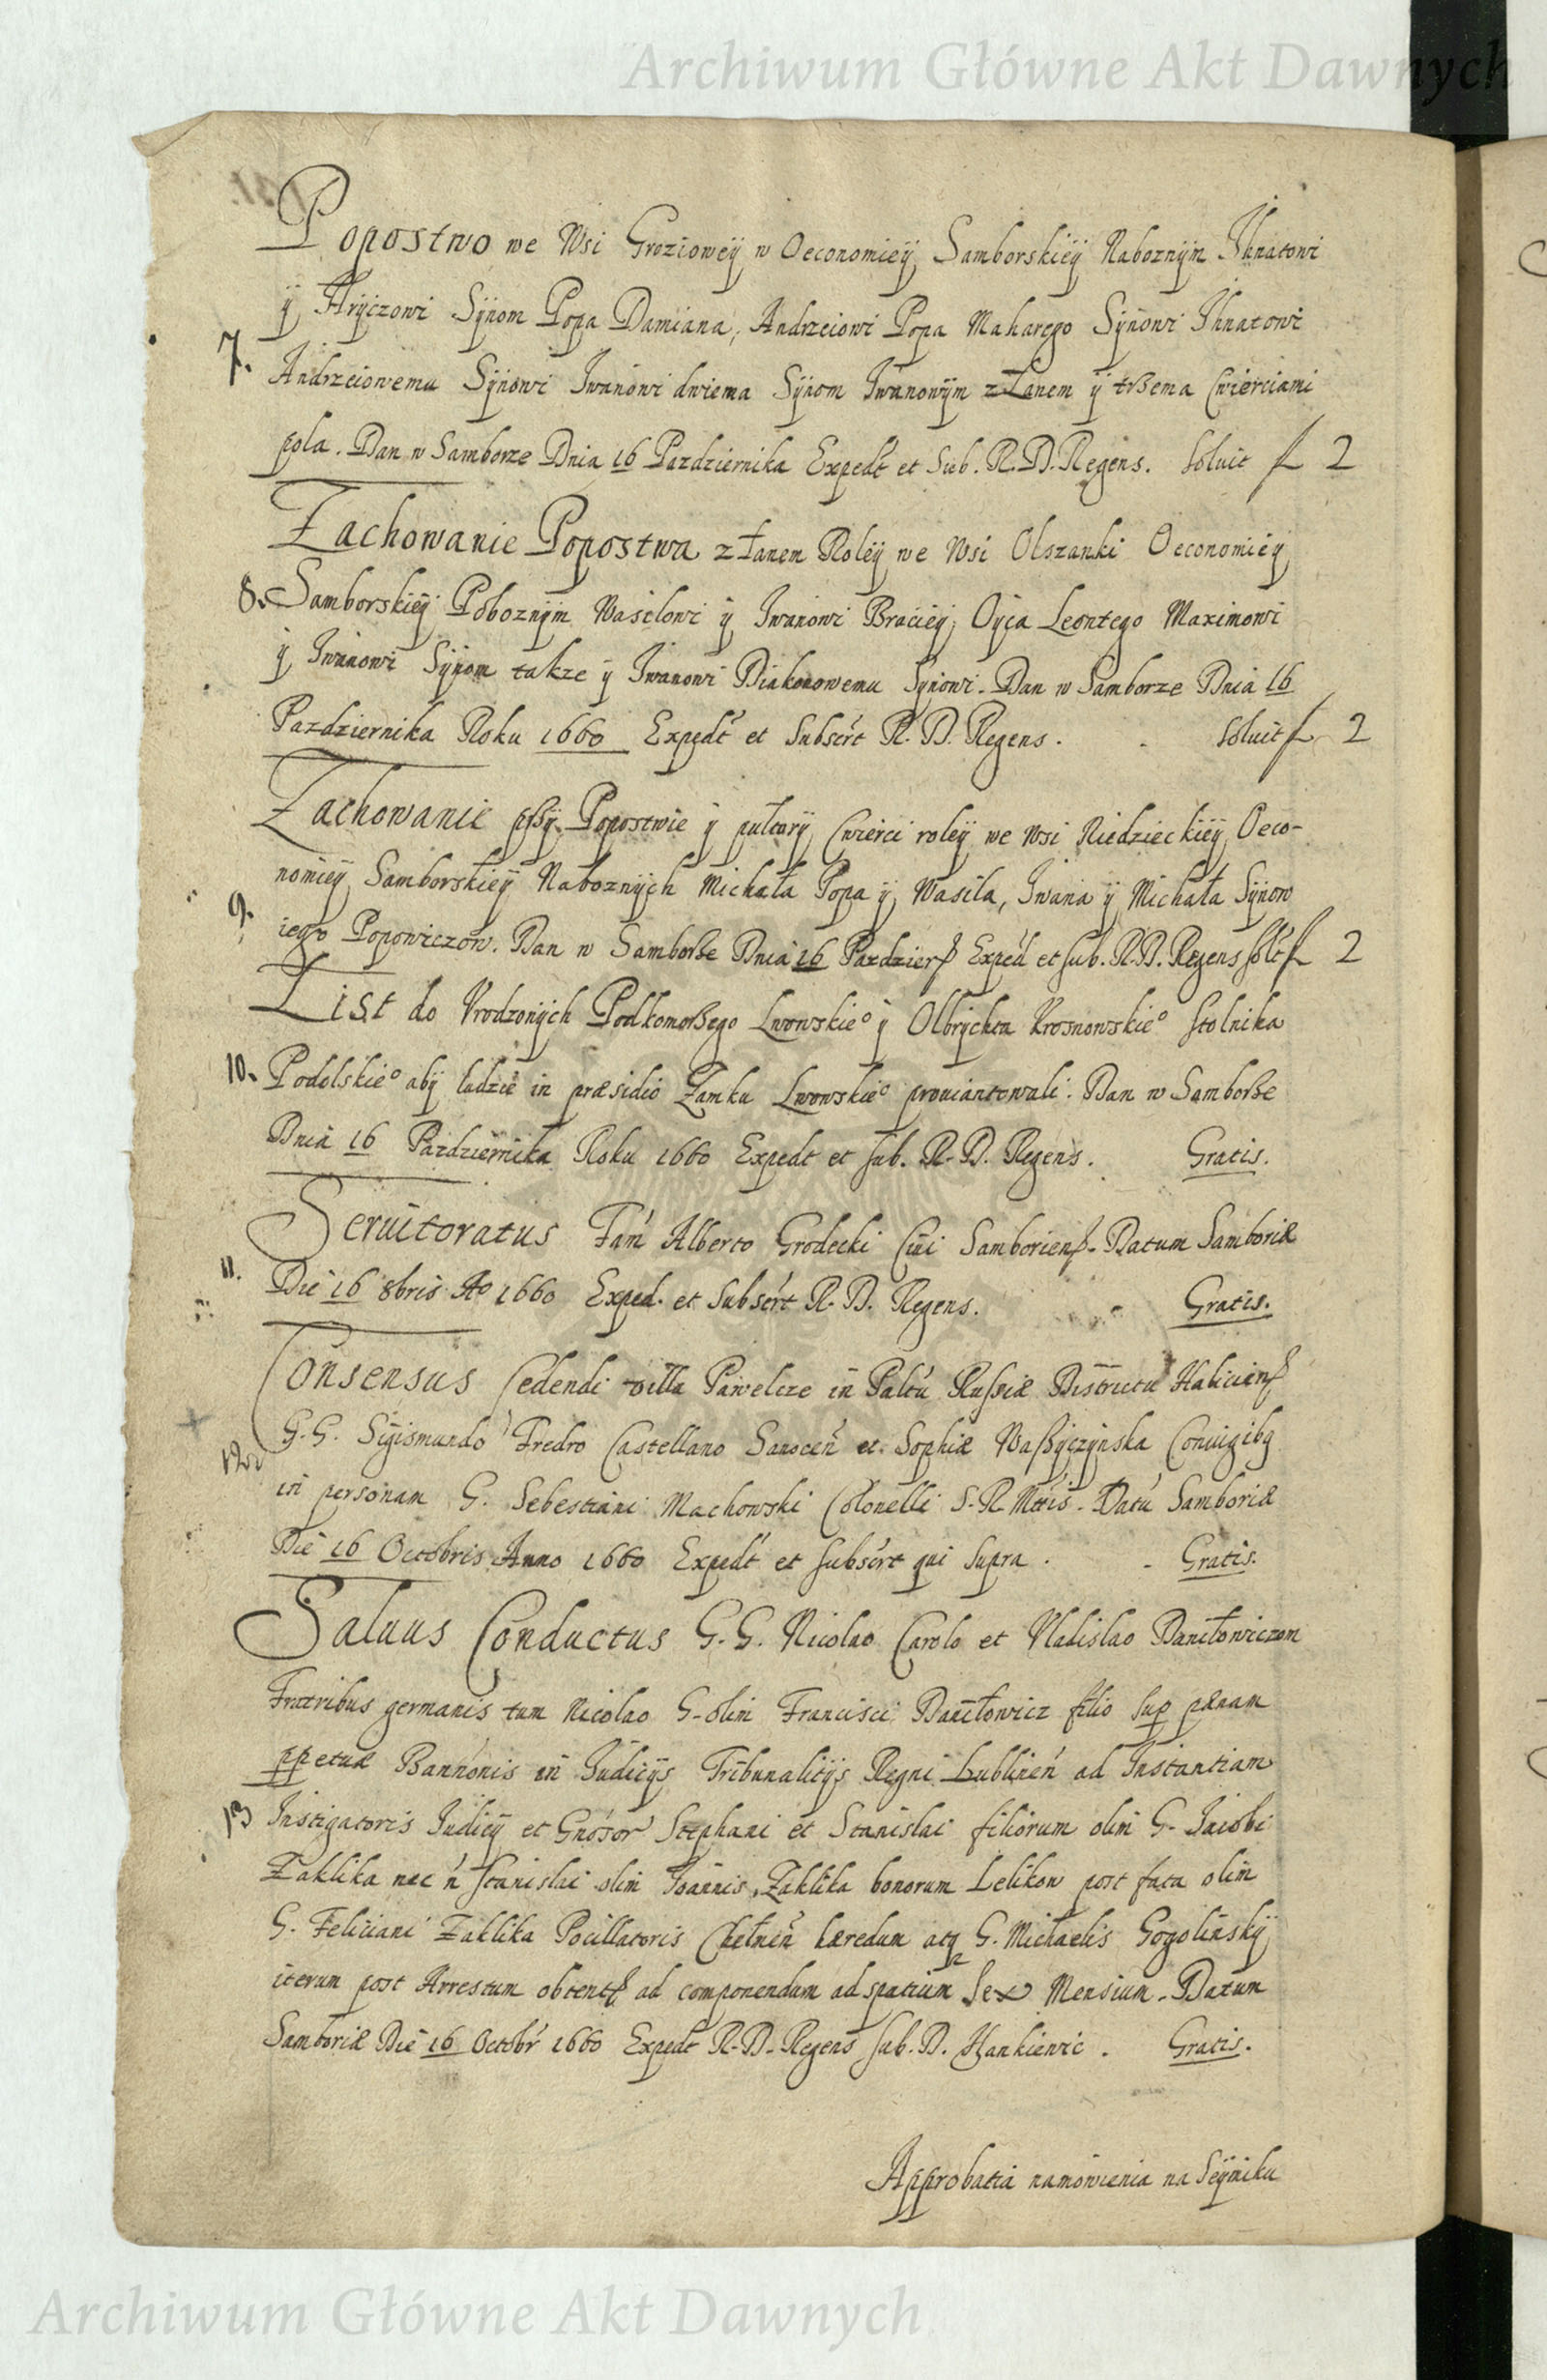 Archiwum Główne Akt Dawnych
Popostwo we Wsi Groziowey w Oeconomiey Samborskiey Naboznym Ihnatowi
y Hryczowi Synom Popa Damiana, Andrzeiowi Popa Maharego Synowi Ihnatowi
7. Andrzeiowemu Synowi Iwanowi dwiema Synom Iwanowym z Łanem y trzema Cwierciami
pola. Dan w Samborze Dnia 16 Pazdziernika Expedt et Sub. R. D. Regens. Soluit f 2
Zachowanie Popostwa z łanem Roley we Wsi Olszanki Oeconomiey
8. Samborskiey Poboznym Wasilowi y Iwanowi Braciey, Oyca Leontego Maximowi
y Iwanowi Synom takze y Iwanowi Diakonowemu Synowi. Dan w Samborze Dnia 16
Pazdziernika Roku 1660 Expedt et Subscrt R. D. Regens. Soluit f 2
Zachowanie przy Popostwie y pułtory Cwierci roley we Wsi Niedzieckiey Oeco-
nomiey Samborskiey Naboznych Michała Popa y Wasila, Iwana y Michała Synow
9. iego Popowiczow. Dan w Samborze Dnia 16 Pazdzier Exped et sub. R. D. Regens solt f 2
List do Vrodzonych Podkomorzego Lwowskieo y Olbrychta Krosnowskieo Stolnika
10. Podolskieo aby ludzie in præsidio Zamku Lwowskieo prouiantowali. Dan w Samborze
Dnia 16 Pazdziernika Roku 1660 Expedt et sub. R. D. Regens. Gratis.
Seruitoratus Fam Alberto Grodecki Ciui Samboriens. Datum Samboriæ
11. Die 16 8bris Ao 1660 Exped. et Subscrt R. D. Regens. Gratis.
Consensus Cedendi villa Pawelcze in Paltu Russiæ Districtu Haliciens
G. G. Sigismundo Fredro Castellano Sanocen et Sophiæ Waszyczynska Coniugibq
12. in personam G. Sebestiani Machowski Colonelli S. R. Mttis. Datu Samboriæ
Die 16 Octobris Anno 1660 Expedt et subscrt qui Supra. Gratis.
Saluus Conductus G. G. Nicolao Carolo et Vladislao Daniłowiczom
Fratribus germanis tum Nicolao G. olim Francisci Daniłowicz filio sup pænam
ppetuæ Bannonis in Iudicijs Tribunalitijs Regni Lublinen ad Instantiam
13 Instigatoris Iudicij et Gnosor Stephani et Stanislai filiorum olim G. Iacobi
Zaklika nec n Stanislai olim Ioannis Zaklika bonorum Lelikow post fata olim
G. Feliciani Zaklika Pocillatoris Chełmen hæredum atq G. Michaelis Gogolinskij
iterum post Arrestum obtent ad componendum ad spatium Sex Mensium. Datum
Samboriæ Die 16 Octobr 1660 Expedt R. D. Regens sub. D. Hankiewic. Gratis.
Approbatia namowienia na Seymiku
Archiwum Główne Akt Dawnych